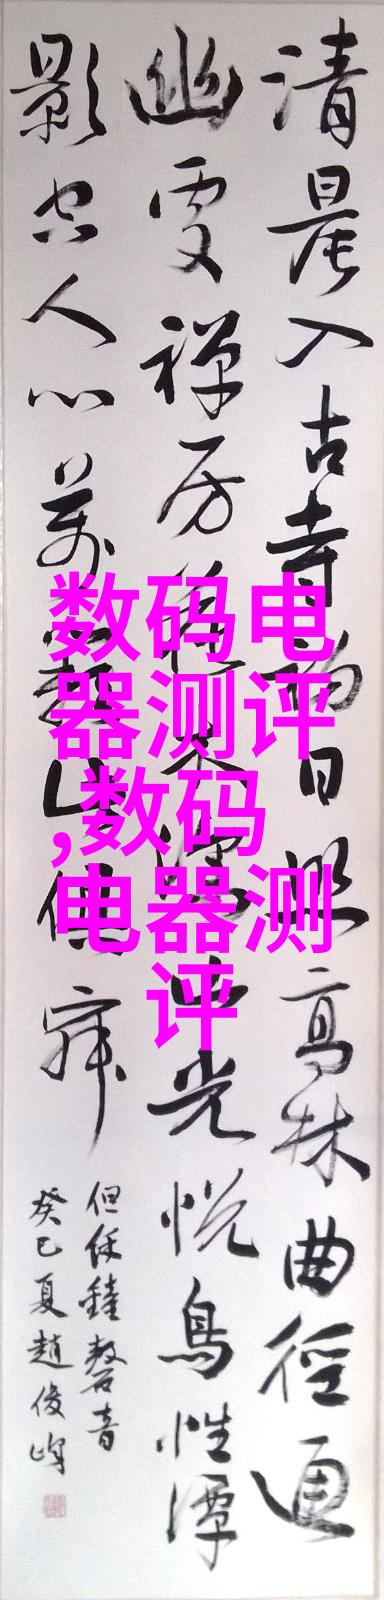 清晨入古寺初日照高林曲徑通
幽處禪房花木深山光悅鳥性潭
影空人心萬籟此俱寂
但餘鐘磬音
癸巳夏趙俊峰
数码电
器测评
,数码
电器测
评